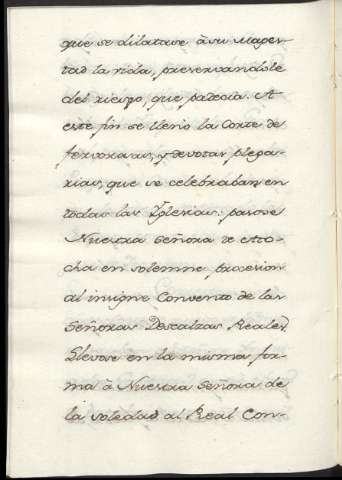 que se dilatase à su Mages-
tad la vida, preservandole
del riesgo, que padecia. A
este fin se llenò la Corte de
fervorosas, y devotas plega-
rias, que se celebraban en
todas las Yglesias: pasose
Nuestra Señora de Ato-
cha en solemne procesion
al insigne Convento de las
Señoras Descalzas Reales,
Llevose en la misma for-
ma à Nuestra Señora de
la soledad al Real Con-